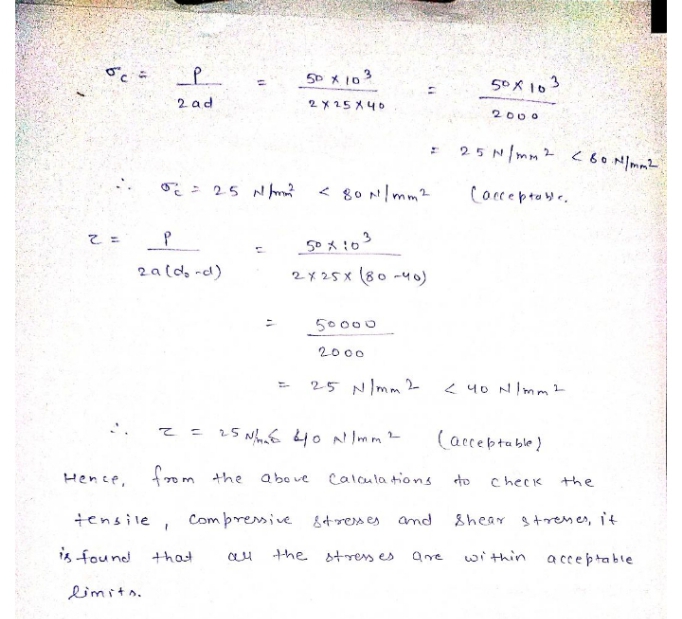 σc = P / 2ad = 50 × 10³ / 2×25×40 = 50×10³ / 2000
= 25 N/mm² < 80 N/mm²
∴ σc = 25 N/mm² < 80 N/mm² (acceptable.
τ = P / 2a(d₀-d) = 50×10³ / 2×25×(80-40)
= 50000 / 2000
= 25 N/mm² < 40 N/mm²
∴ τ = 25 N/mm² < 40 N/mm² (acceptable)
Hence, from the above calculations to check the
tensile, compressive stresses and shear stresses, it
is found that all the stresses are within acceptable
limits.